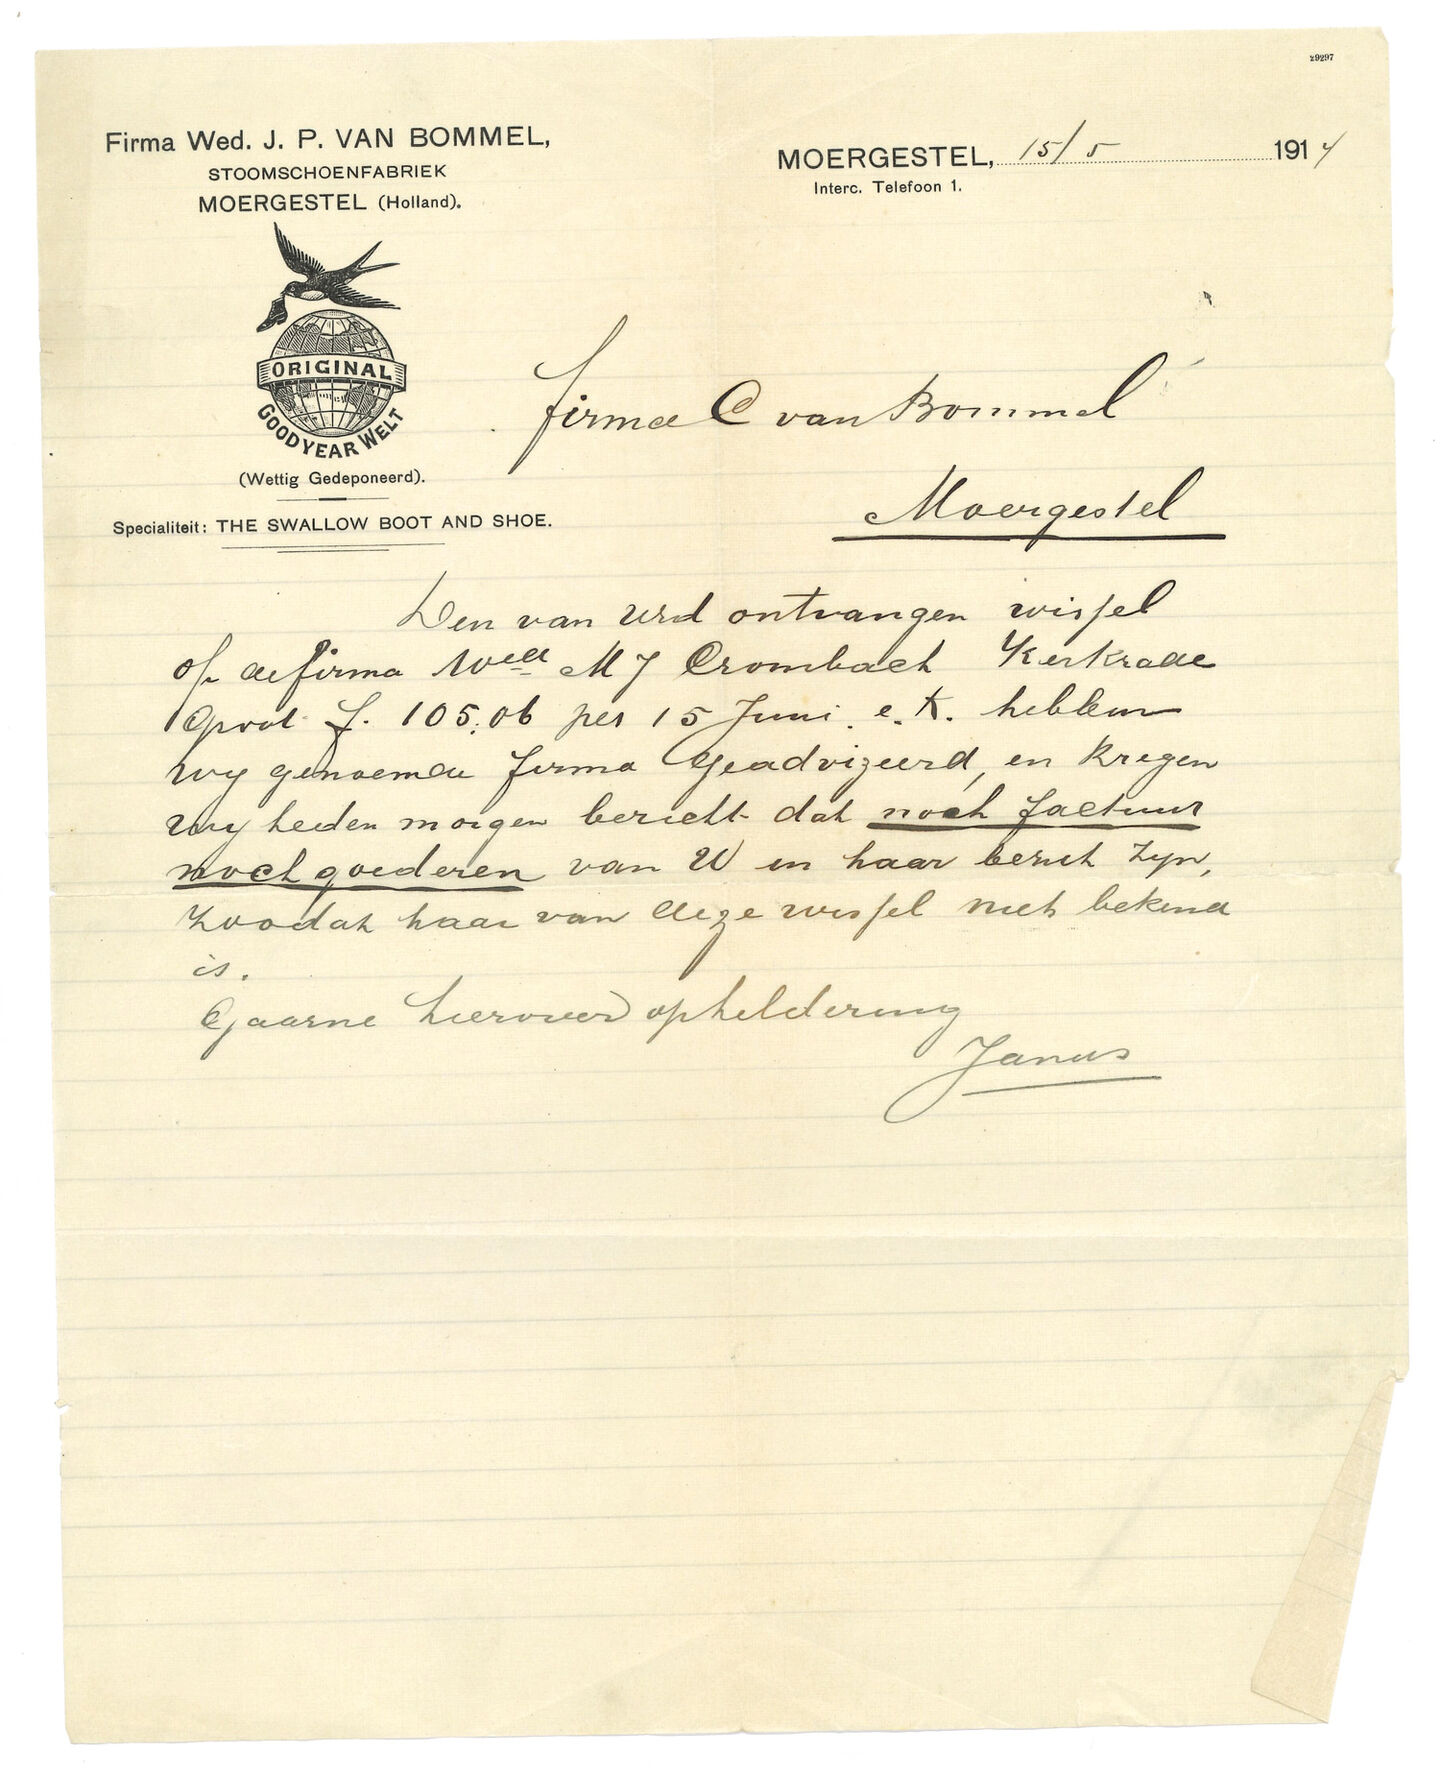 29297
Firma Wed. J. P. VAN BOMMEL,
STOOMSCHOENFABRIEK
MOERGESTEL (Holland).
MOERGESTEL, 15/5 1914
Interc. Telefoon 1.
ORIGINAL
GOODYEAR WELT
(Wettig Gedeponeerd).
Specialiteit: THE SWALLOW BOOT AND SHOE.
firma C van Bommel
Moergestel
Den van Urd ontvangen wissel
op de firma Wed M J Crombach Kerkrade
groot f. 105.06 per 15 Juni e.k. hebben
wy genoemde firma geadvizeerd, en kregen
wy heden morgen bericht dat noch factuur
noch goederen van U in haar bezit zyn,
zoodat haar van deze wissel niets bekend
is.
Gaarne hierover opheldering
Janus